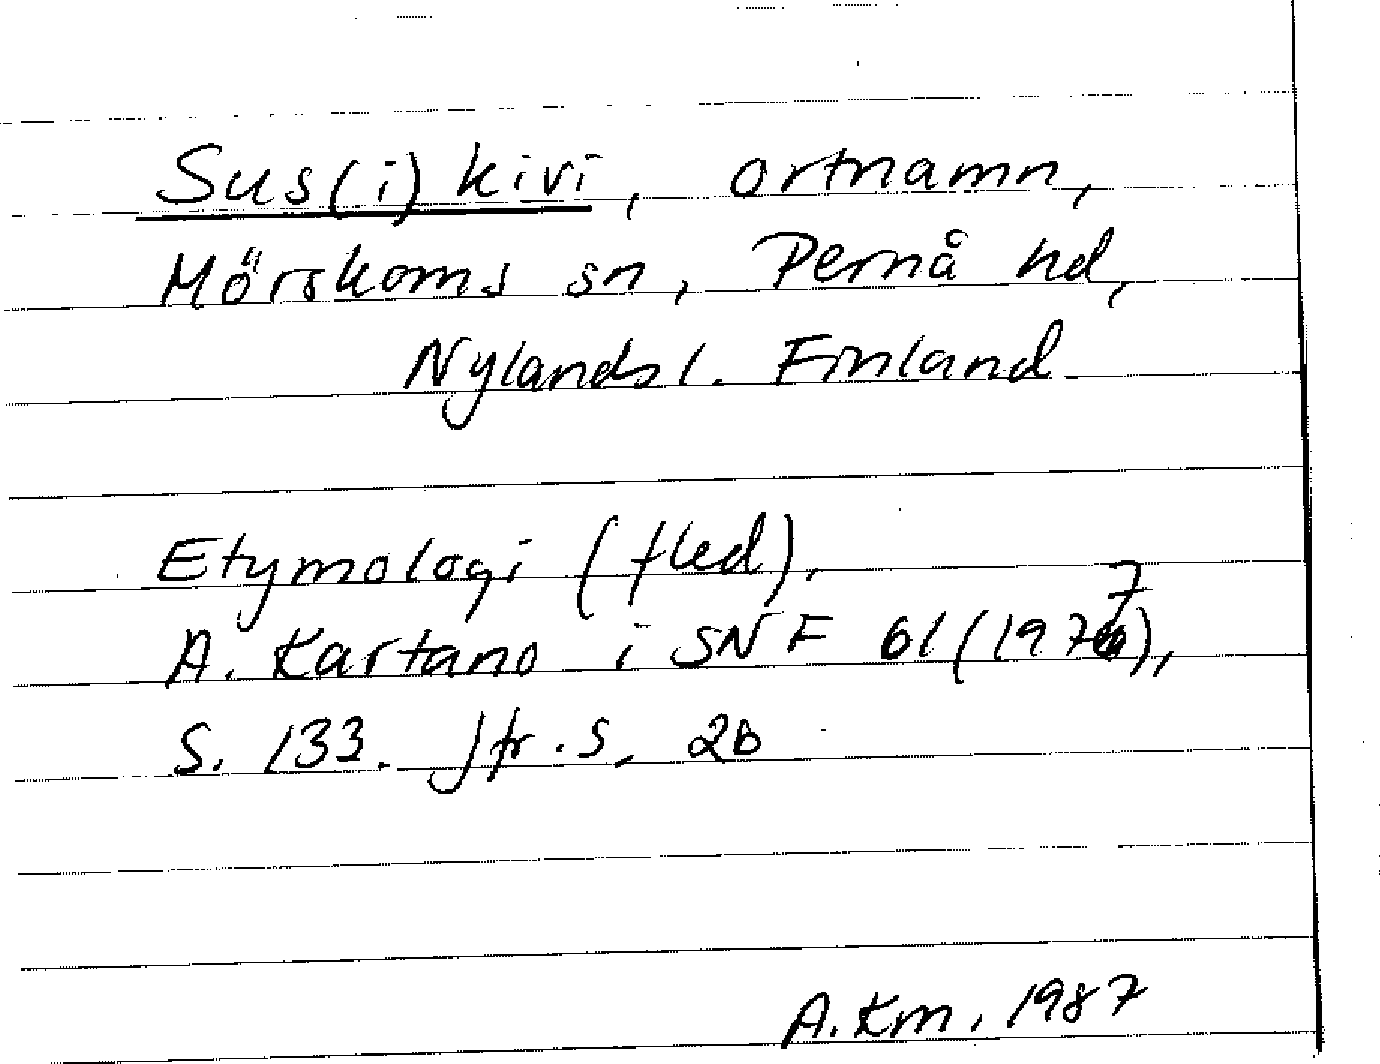 Sus(i)kivi, ortnamn,
Mörskoms sn, Pernå hd,
Nylands l. Finland
Etymologi (fled).
A. Kartano i SNF 61 (1977),
S. 133. Jfr. s. 26
A. Km. 1987